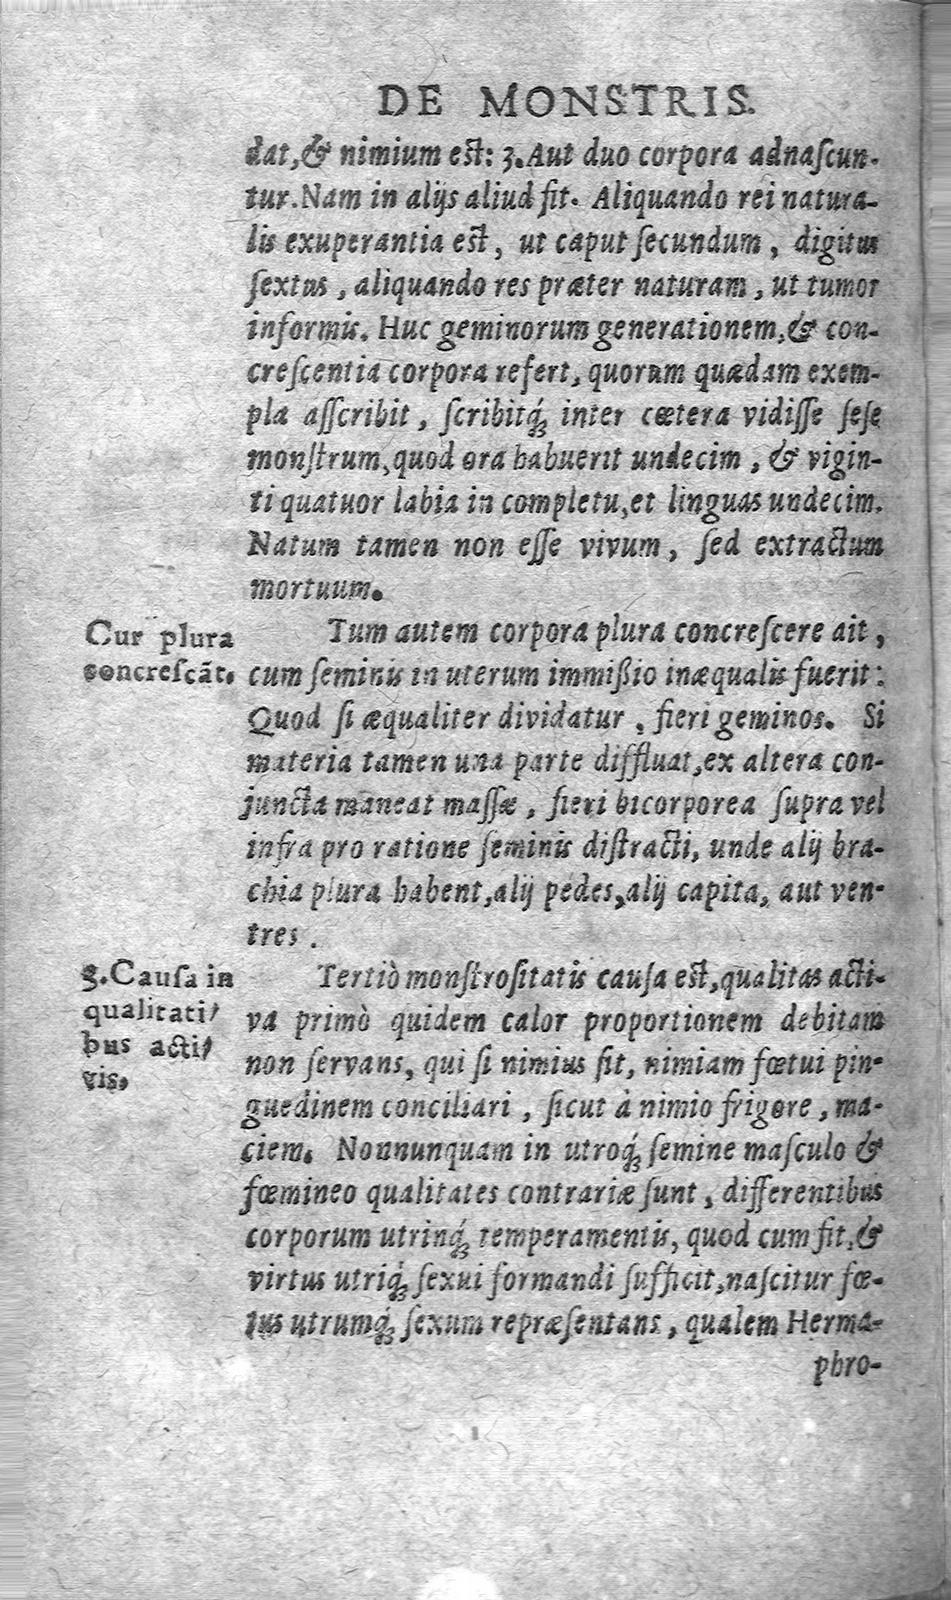 DE MONSTRIS.
dat, & nimium est: 3. Aut duo corpora adnaſcun-
tur. Nam in alijs aliud fit. Aliquando rei natura-
lis exuperantia est, ut caput ſecundum, digitus
ſextus, aliquando res præter naturam, ut tumor
informis. Huc geminorum generationem, & con-
creſcentia corpora refert, quorum quædam exem-
pla aſſcribit, ſcribitq́; inter cætera vidiſſe ſeſe
monſtrum, quod ora habuerit undecim, & vigin-
ti quatuor labia in completu, et linguas undecim.
Natum tamen non eſſe vivum, ſed extractum
mortuum.
Cur plura
concreſcãt.
Tum autem corpora plura concreſcere ait,
cum ſeminis in uterum immißio inæqualis fuerit:
Quod ſi æqualiter dividatur, fieri geminos. Si
materia tamen una parte diffluat, ex altera con-
juncta maneat maſſæ, fieri bicorporea ſupra vel
infra pro ratione ſeminis diſtracti, unde alij bra-
chia plura habent, alij pedes, alij capita, aut ven-
tres.
3. Cauſa in
qualitati-
bus acti-
vis.
Tertiò monſtroſitatis cauſa est, qualitas acti-
va primò quidem calor proportionem debitam
non ſervans, qui ſi nimius ſit, nimiam fœtui pin-
guedinem conciliari, ſicut à nimio frigore, ma-
ciem. Nonnunquam in utroq́; ſemine maſculo &
fœmineo qualitates contrariæ ſunt, differentibus
corporum utrinq́; temperamentis, quod cum fit, &
virtus utriq́; ſexui formandi ſufficit, naſcitur fœ-
tus utrumq́; ſexum repræſentans, qualem Herma-
phro-